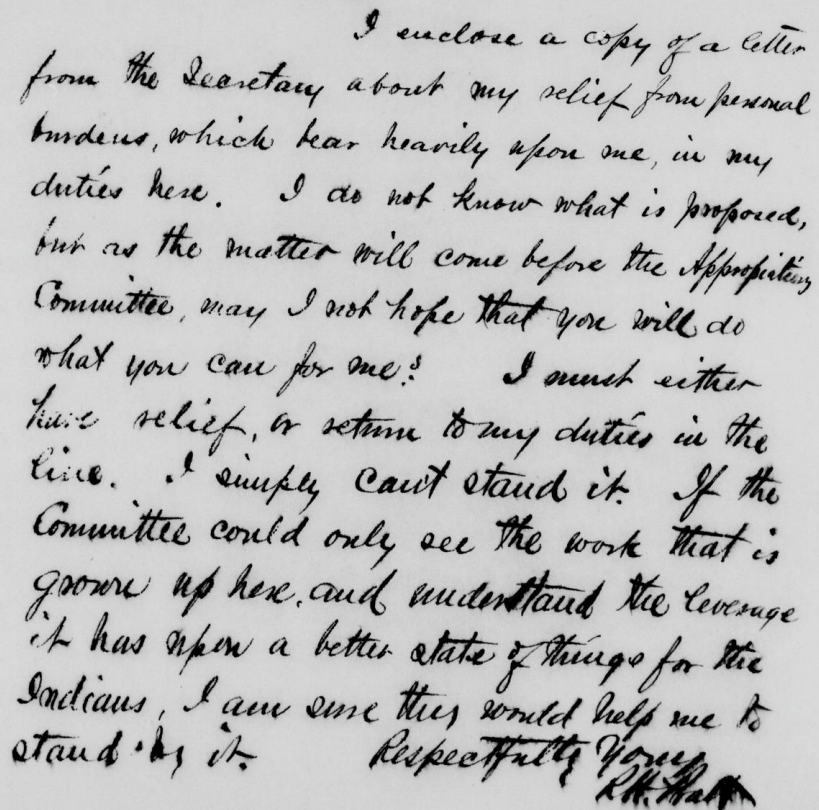 I enclose a copy of a letter
from the Secretary about my relief from personal
burdens, which bear heavily upon me, in my
duties here. I do not know what is proposed,
but as the matter will come before the Appropriations
Committee, may I not hope that you will do
what you can for me? I must either
have relief, or return to my duties in the
line. I simply can't stand it. If the
Committee could only see the work that is
grown up here, and understand the leverage
it has upon a better state of things for the
Indians, I am sure they would help me to
stand by it. Respectfully Yours
R.H. Pratt